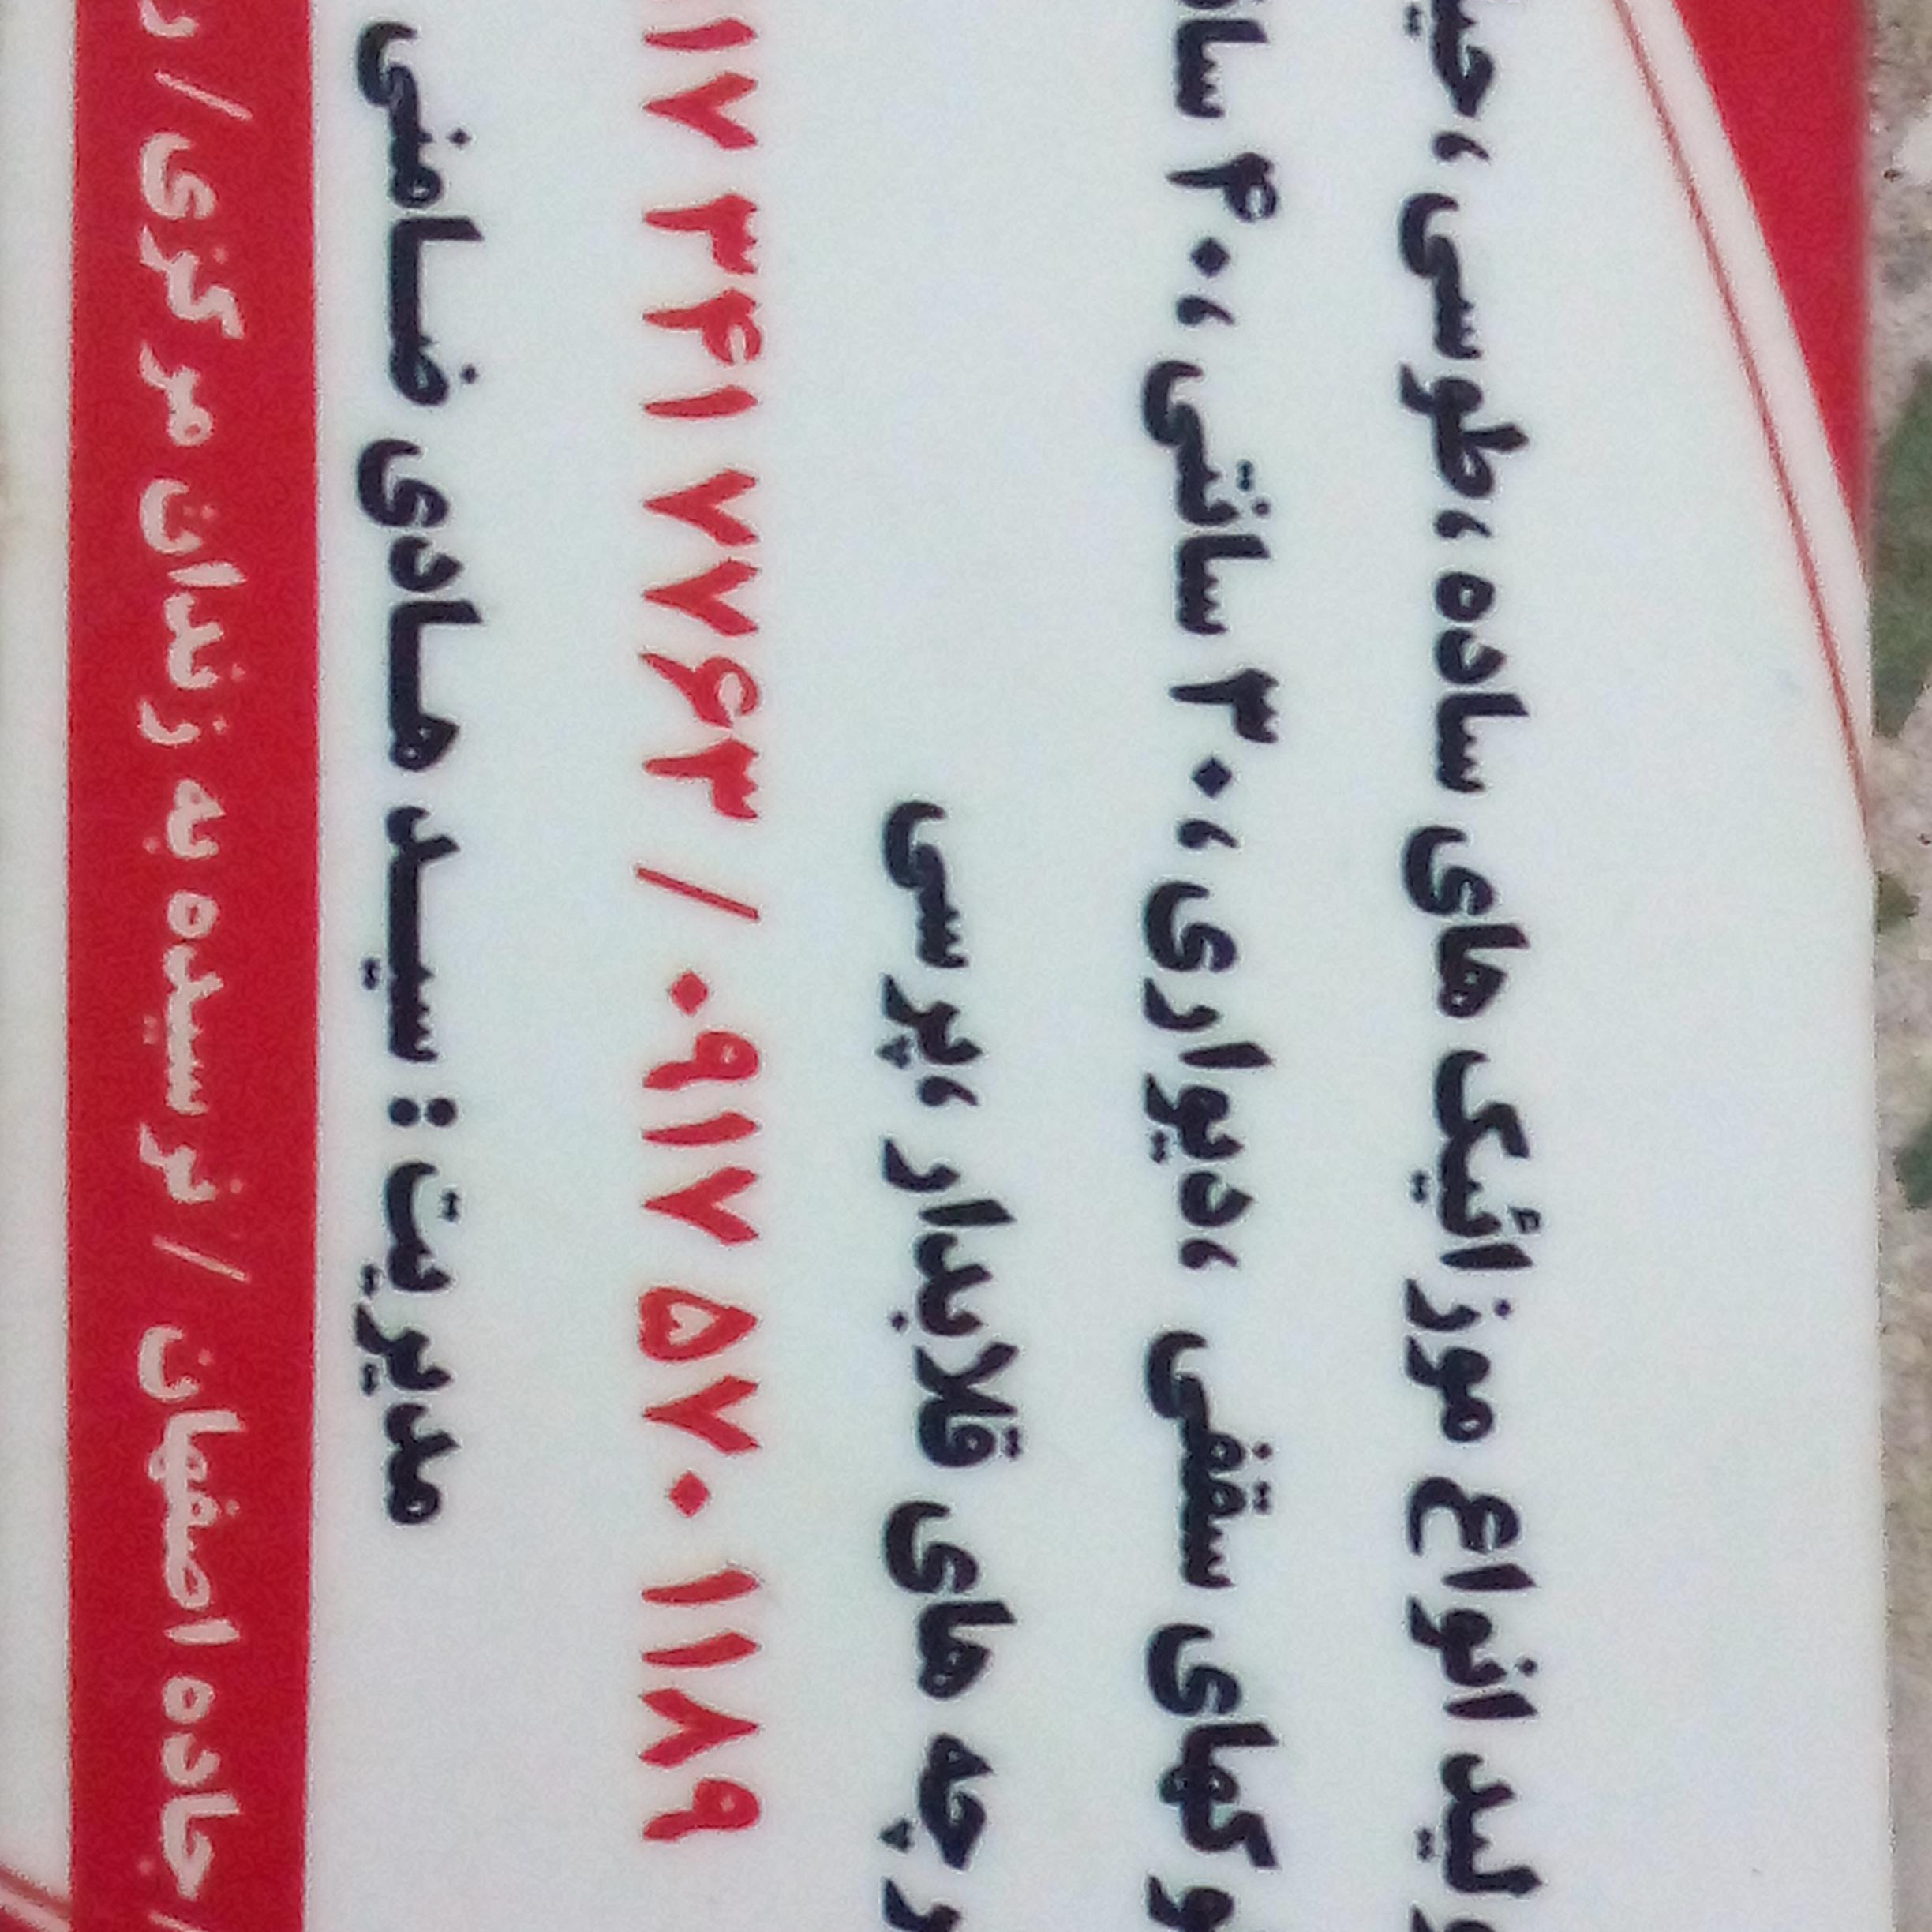 ولید انواع موزائیک های ساده ،طوسی ،حیا
وکهای سقفی ،دیواری ،۳۰ سانتی ،۴۰ سا
رچه های قلابدار ،پرسی
۱۷ ۳۴۱ ۷۷۶۳ / ۰۹۱۷ ۵۷۰ ۱۱۸۹
مدیریت : سید هادی ضامنی
/ جاده اصفهان / نرسیده به زندان مرکزی /